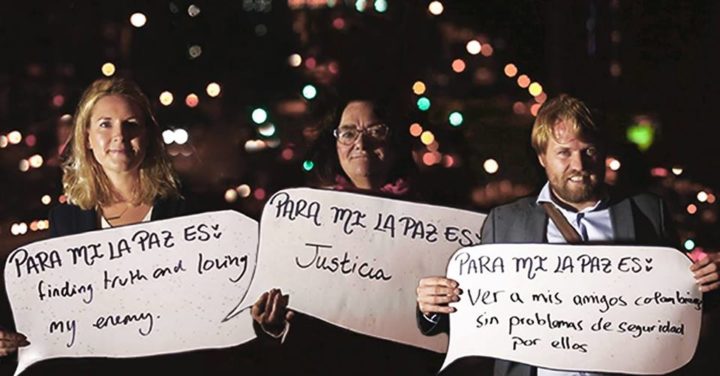 PARA MI LA PAZ ES:
finding truth and loving
my enemy.
PARA MI LA PAZ ES:
Justicia
PARA MI LA PAZ ES:
Ver a mis amigos colombianos
sin problemas de seguridad
por ellos